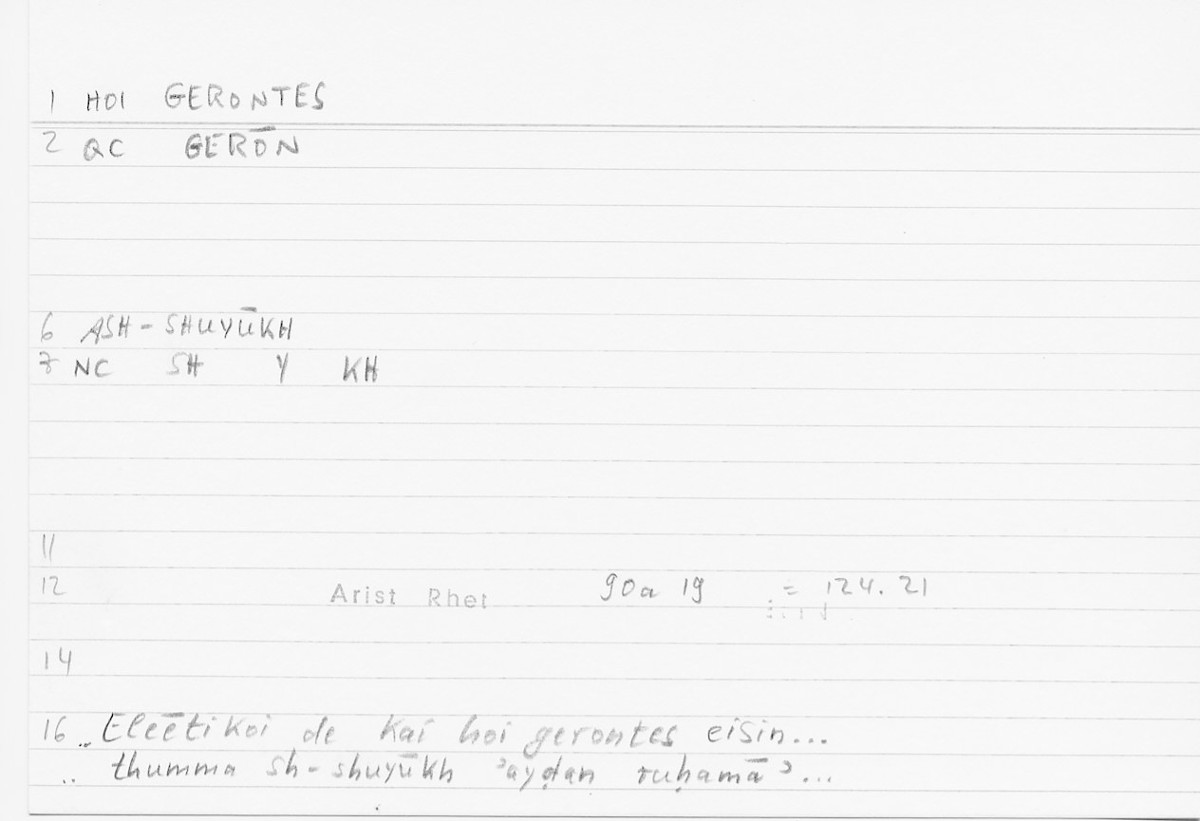 1 HOI GERONTES
2 QC GERŌN
6 ASH-SHUYŪKH
7 NC SH Y KH
11
12 Arist Rhet 90a 19 = 124.21
14
16 .. Eleētikoi de kaí hoi gerontes eisin...
.. thumma sh-shuyūkh ʾayḍan ruḥamāʾ...